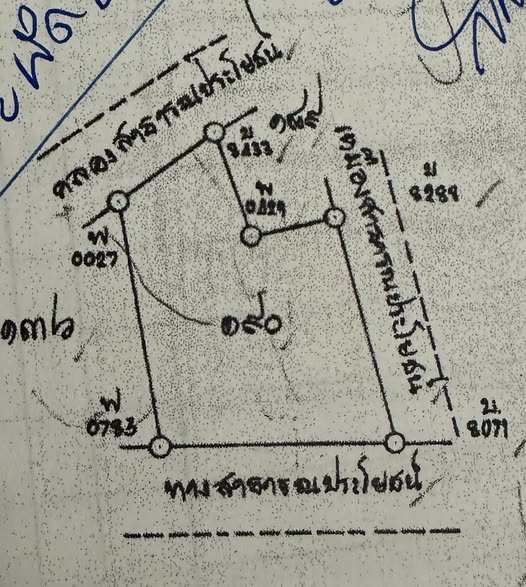 คลองสาธารณประโยชน์
๑๘๙
น
8433
พ
0429
เหมืองสาธารณประโยชน์
น
8288
พ
0027
๑๓๖
๑๙๐
พ
0783
น.
8071
ทางสาธารณประโยชน์